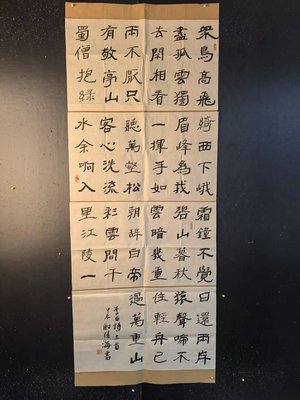 衆鳥高飛
盡孤雲獨
去閑相看
兩不厭只
有敬亭山
蜀僧抱綠
綺西下峨
眉峰為我
一揮手如
聽萬壑松
客心洗流
水余响入
霜鐘不覺
碧山暮秋
雲暗幾重
朝辭白帝
彩雲間千
里江陵一
日還兩岸
猿聲啼不
住輕舟已
過萬重山
李白詩三首
海書